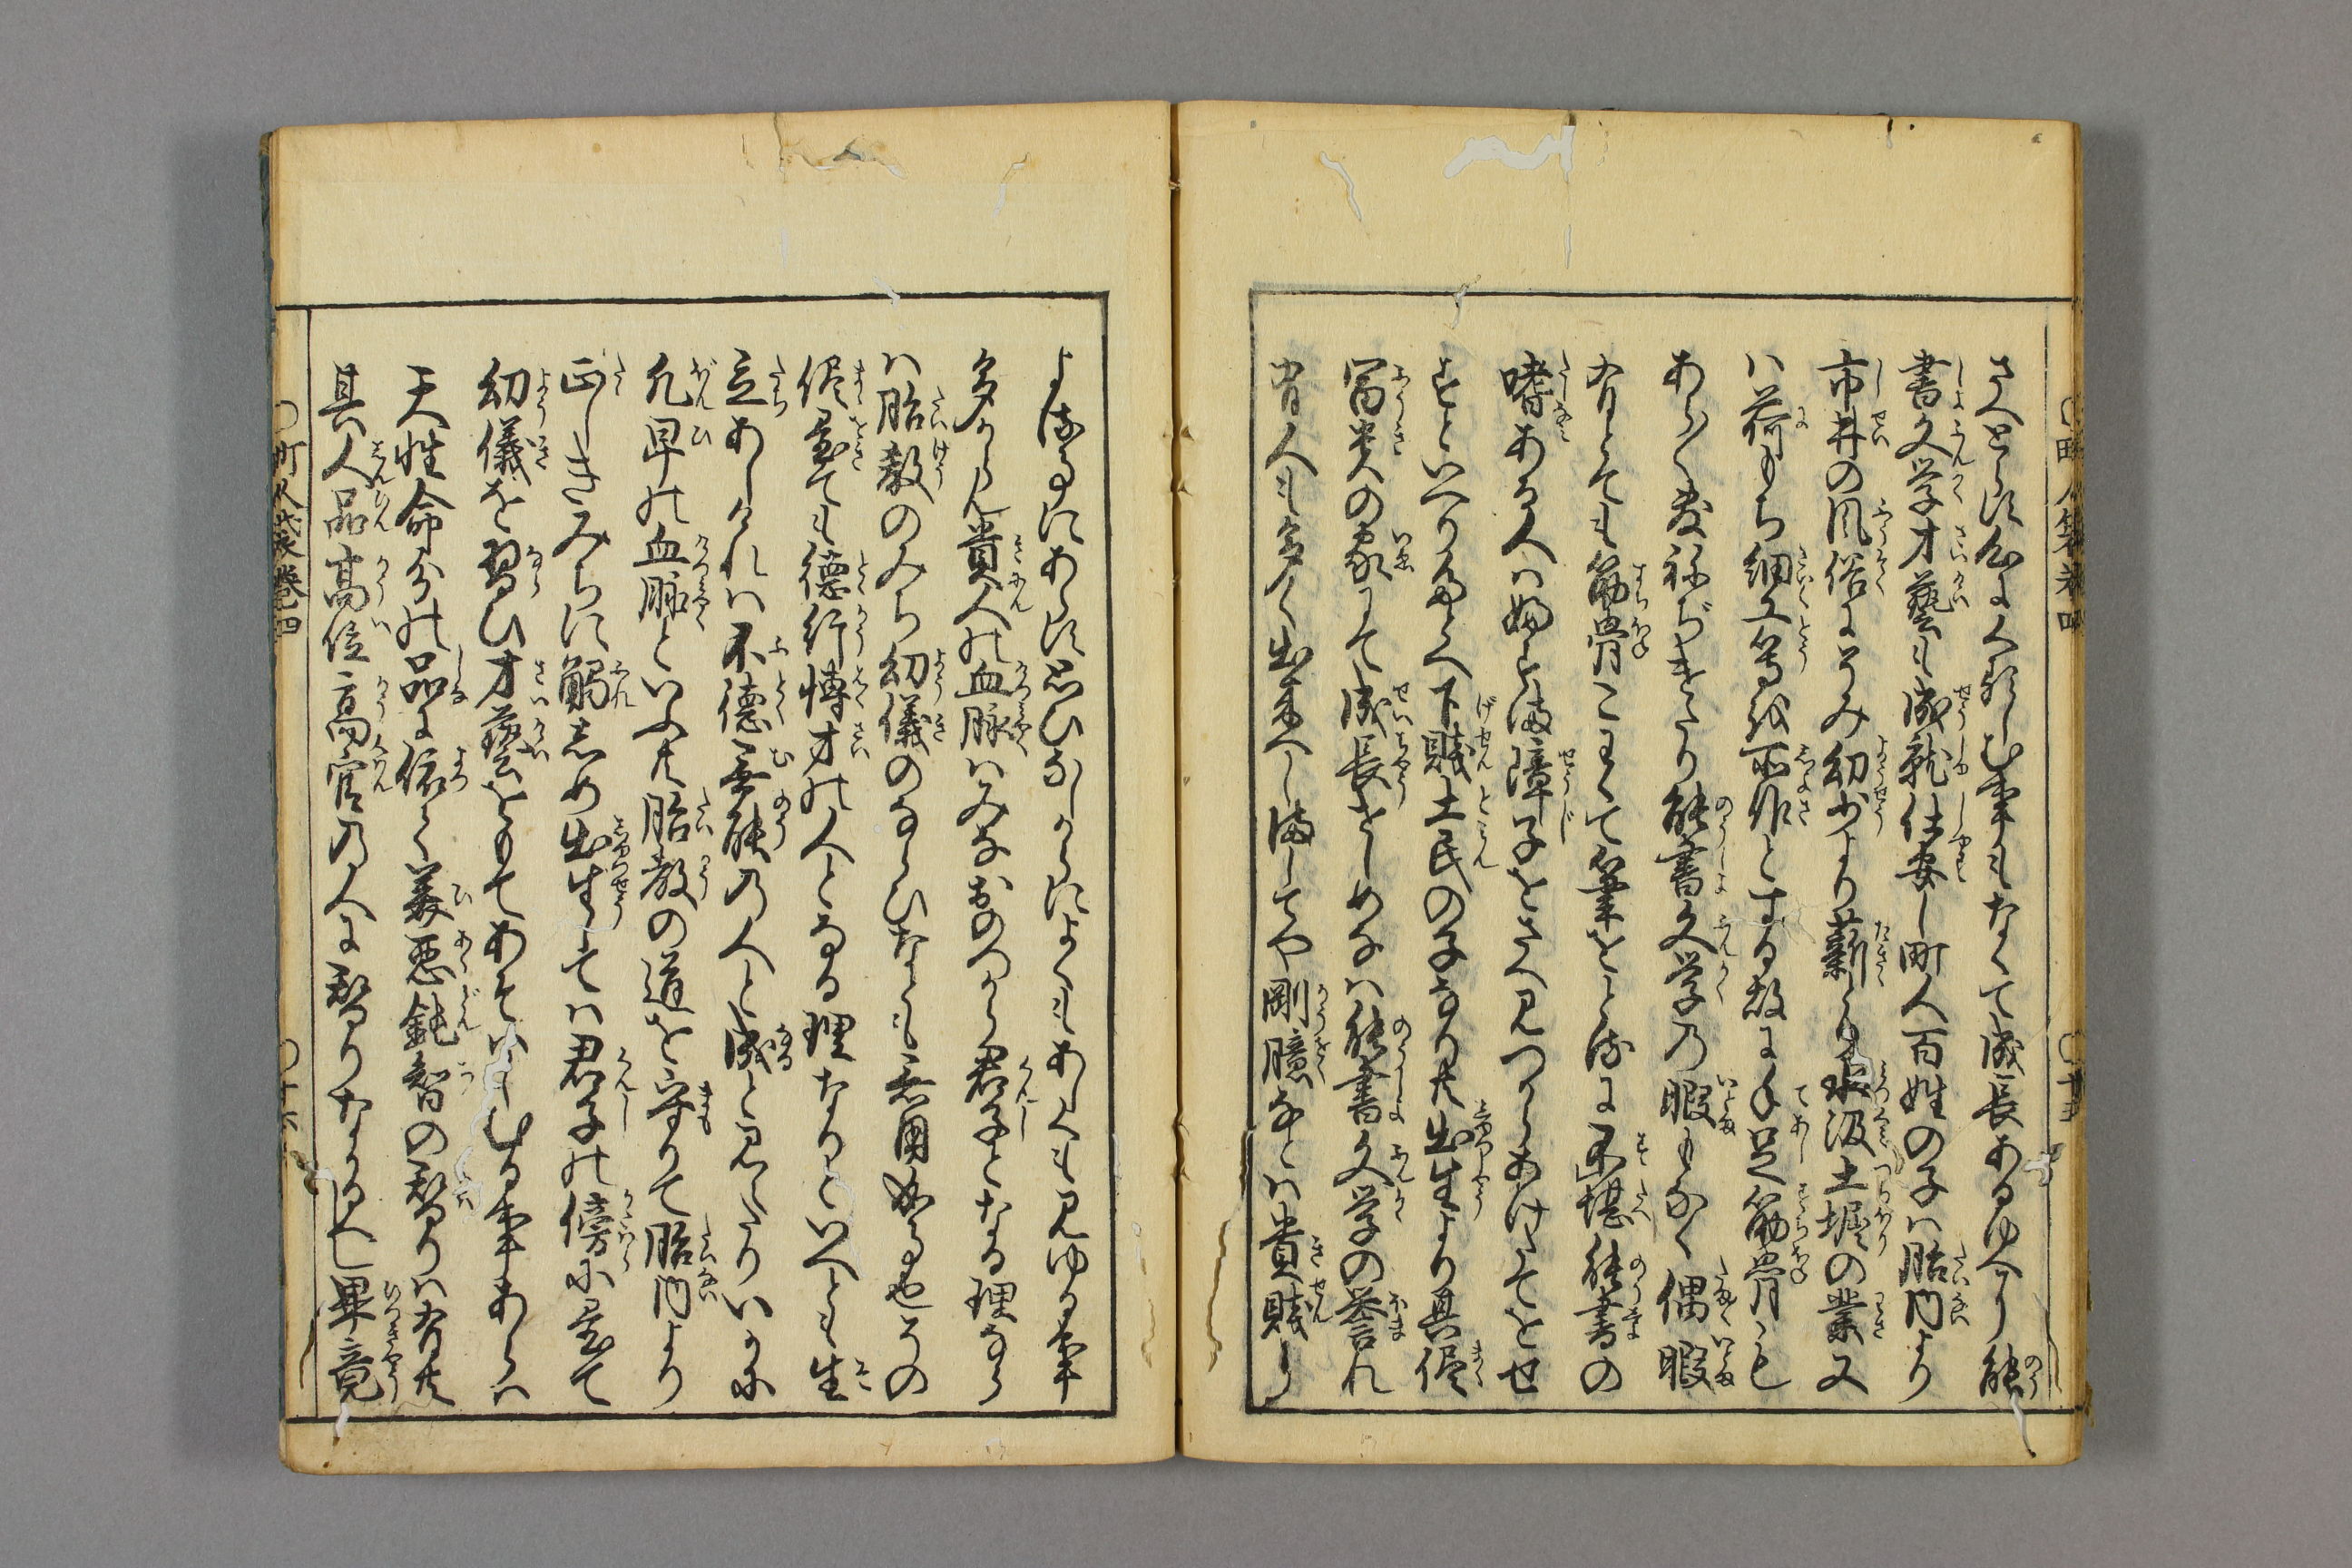 さへとらば召よくたしむ事もなくて成長あるゆへり能
書文学才藝も成就仕安し町人百姓の子ハ胎内より
市井の風俗にそみ幼少より薪とり水汲土堀の業又
ハ荷もち細工等試所作とする故に手足筋骨こも
あら〳〵敷ねぢけたり能書文学乃暇もなく偶暇
有とても筋骨こわくて筆をとるに不堪能書の
嗜ある人ハ婦とふ障子をさへ見つからあけたてをせ
ずといへりたとへ下賤土民の子なり共出生より其侭
冨貴の家にて成長せしめなハ能書文学の誉れ
有人も多く出来へし而してや剛臆なとハ貴賤に
よるにあらず思ひなしからによくもあしくも見ゆる事
多からん貴人の血脉ハみなおのつから君子となる理なら
ハ胎教のみち幼儀のならひなとも無用成る也その
侭置ても徳行博才の人となる理なりといへとも生
立あしけれハ不徳無能乃人と成と見へたりいかに
凡卑の血脉といふ共胎教の道を守りて胎内より
正しきみちに觸しめ出生してハ君子の傍に置て
幼儀を習ひ才藝をもてあそハしむる事あらハ
天性命分の品に依て美悪鈍智の替りハ有共
其人品高位高官乃人に替りなかるへし畢竟
町人袋巻四
〇十六